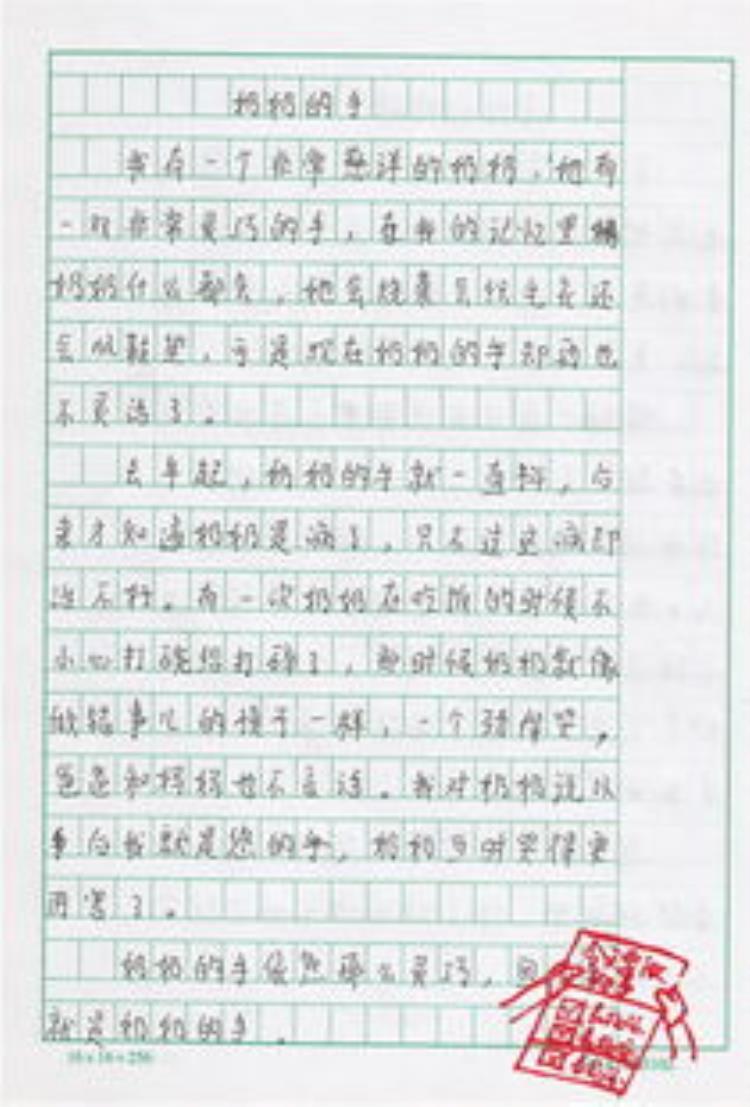 奶奶的手
我有一个非常慈祥的奶奶，她有
一双非常灵巧的手，在我的记忆里
奶奶什么都会，她会烧菜会织毛衣还
会做鞋垫，于是现在奶奶的手却再也
不灵活了。
去年起，奶奶的手就一直抖，后
来才知道奶奶是病了，只不过这病却
治不好。有一次奶奶在吃饭的时候不
小心打碗给打碎了，那时候奶奶就像
做错事儿的孩子一样，一个劲
爸爸和妈妈也不言语。我对奶奶说以
后我就是您的手，奶奶
了。
奶奶的手依然那么灵巧，
就是奶奶的手。
16×16=256